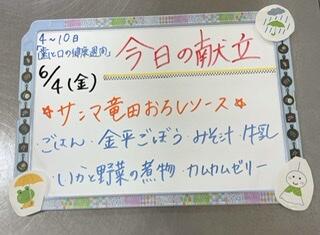 4～10日
「歯と口の健康週間」
今日の献立
6/4(金)
☆サンマ竜田おろしソース☆
・ごはん・金平ごぼう・みそ汁・牛乳
・いかと野菜の煮物・カムカムゼリー